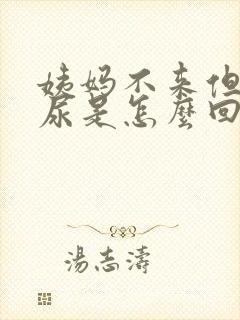 姨妈不来但
尿是怎麼回
湯志濤